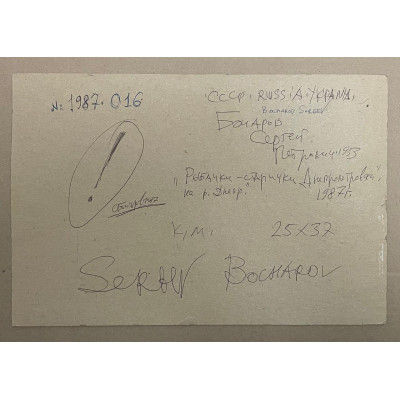 N: 1987. 016
СССР. RUSSIA. УКРАИНА.
BOCHAROV SERGEY
Бочаров
Сергей
Петрович 1953
"Рыбачки-старички, Днепропетровск,
на р. Днепр" 1987г.
!
К, М. 25X37
SERHIY BOCHAROV